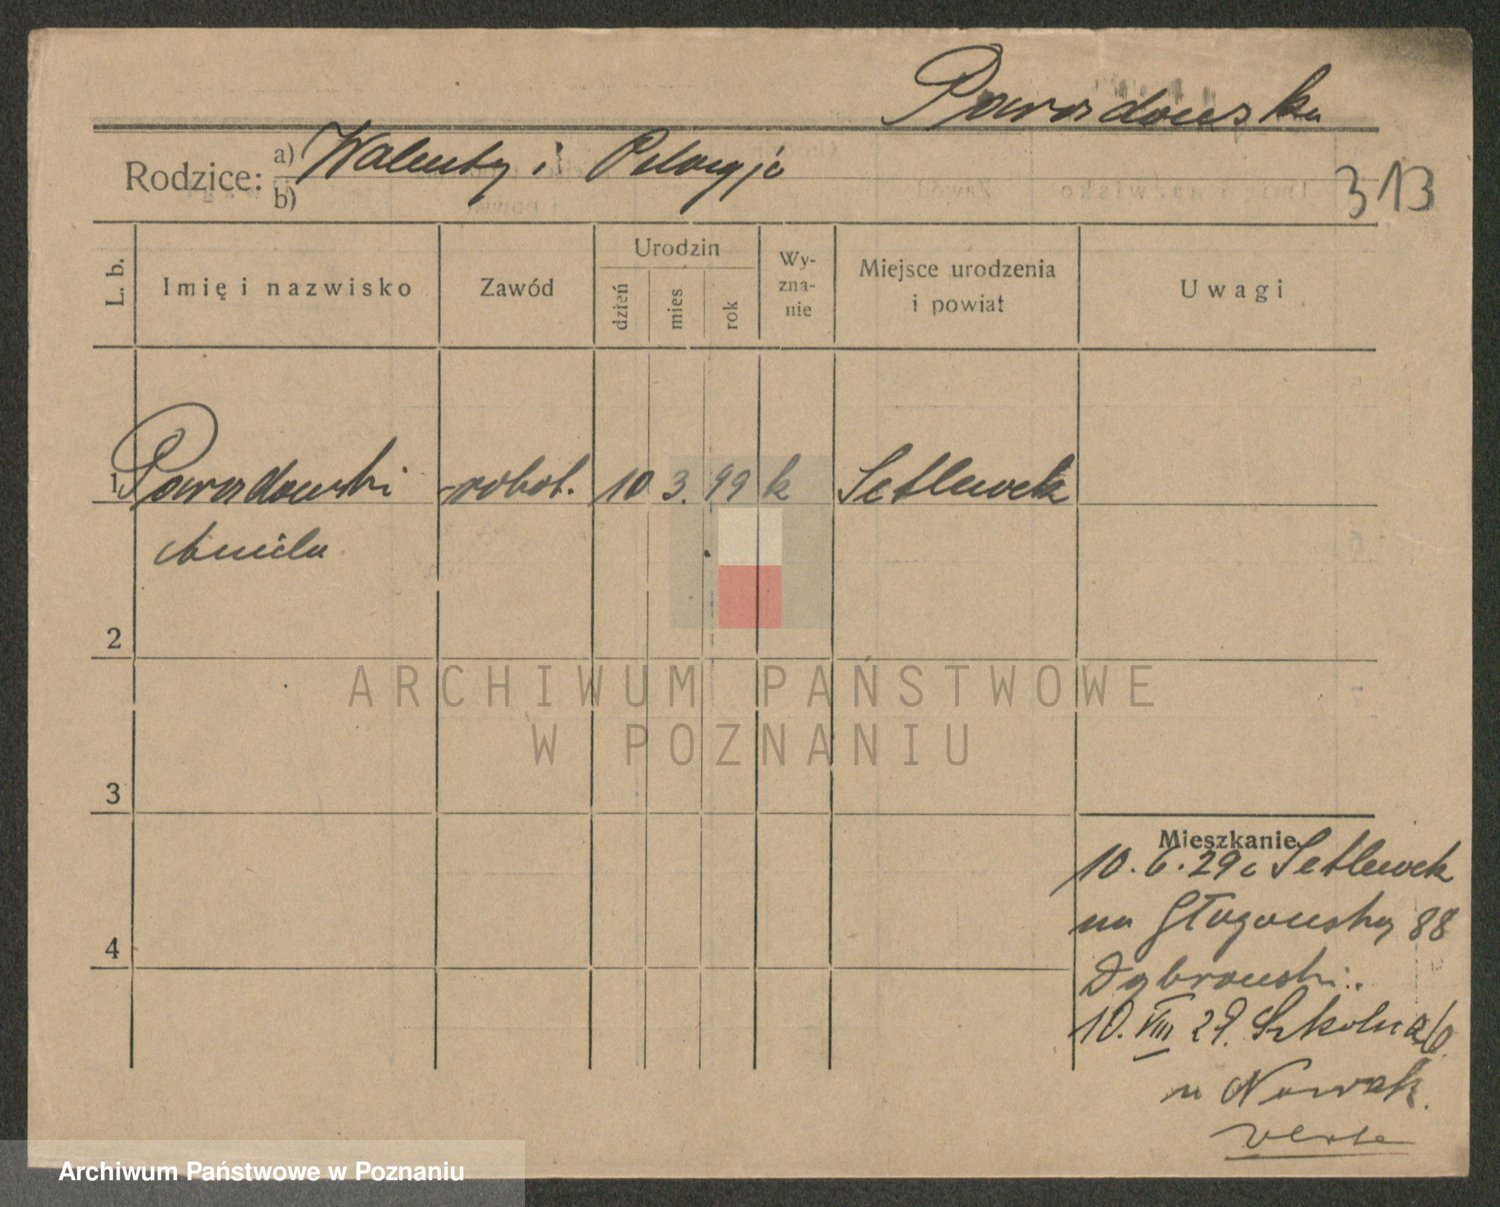 Rodzice: a) Walenty i Pelagja
b)
313
L. b.
Imię i nazwisko
Zawód
Urodzin
dzień
mies
rok
Wy-
zna-
nie
Miejsce urodzenia
i powiat
Uwagi
1 robot. 10 3. 99 k Setlewek
Aniela
2
3
4
Mieszkanie
10. 6. 29 z Setlewek
na Głogowską 88
Dąbrowski.
10. VIII 29. Szkolna
u Nowak.
verte
ARCHIWUM PAŃSTWOWE
W POZNANIU
Archiwum Państwowe w Poznaniu